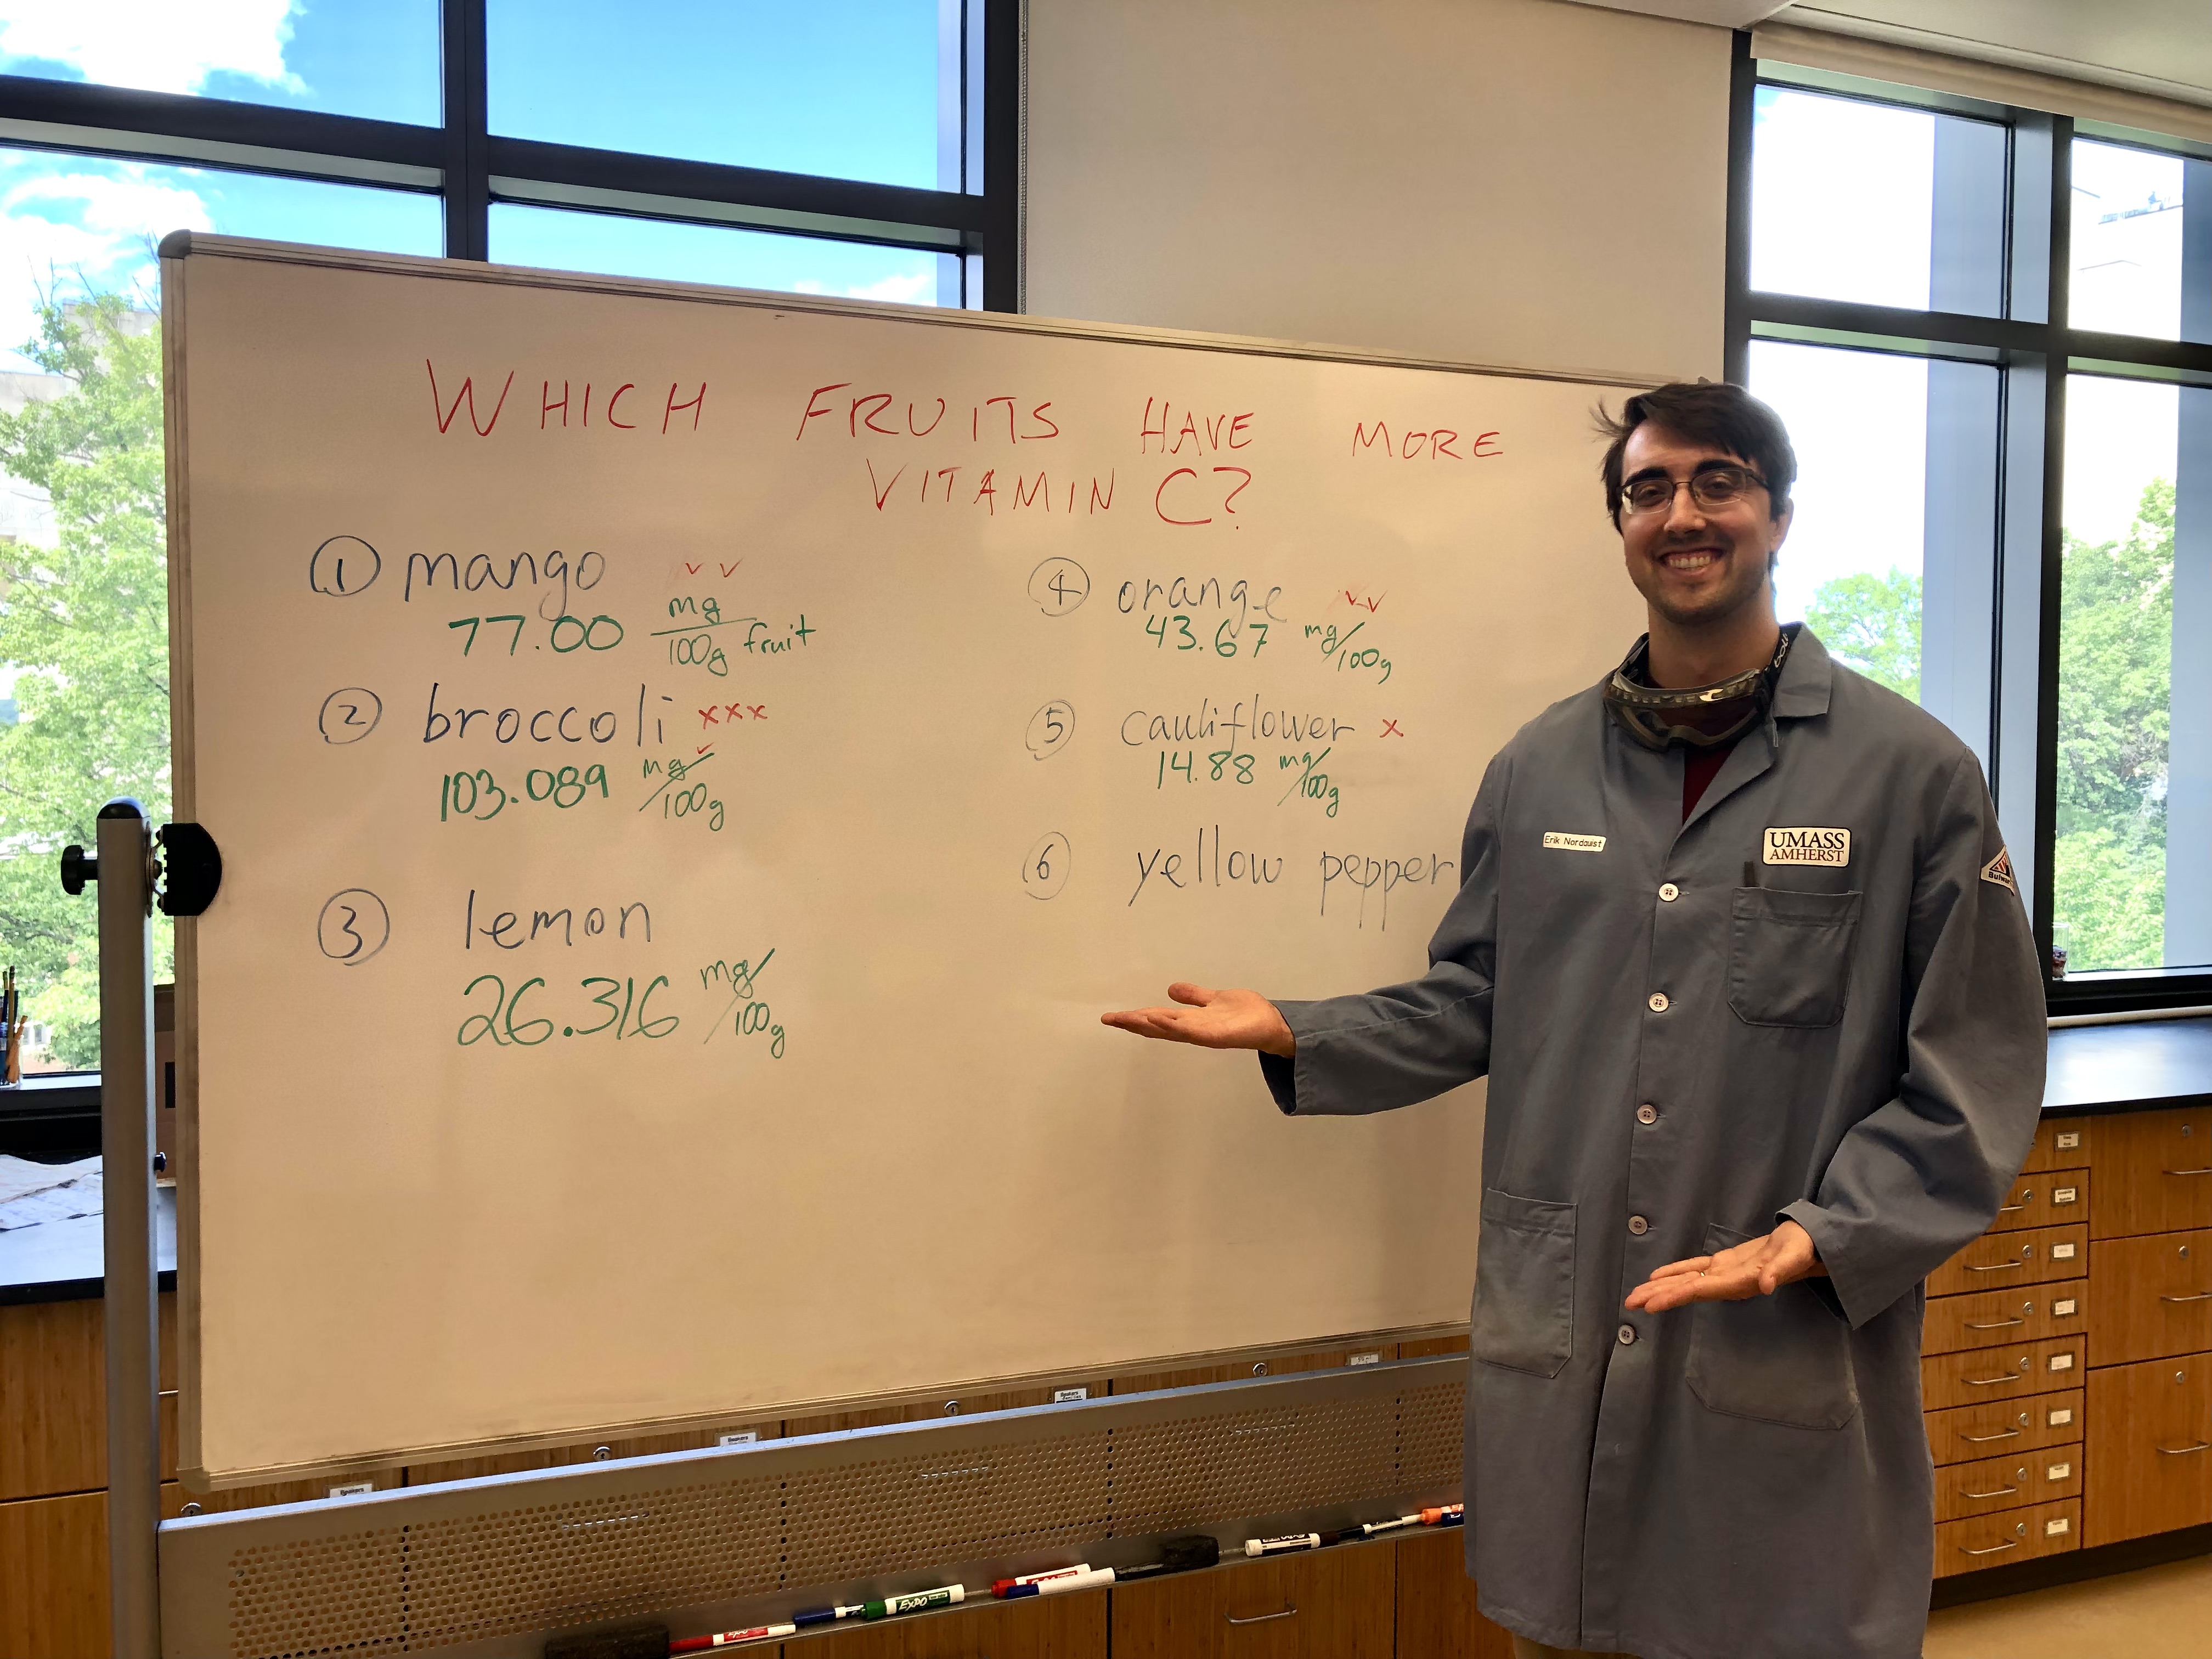 WHICH FRUITS HAVE MORE
VITAMIN C?
① mango ✓✓
77.00 mg/100g fruit
② broccoli xxx
✓
103.089 mg/100g
③ lemon
26.316 mg/100g
④ orange ✓✓
43.67 mg/100g
⑤ cauliflower x
14.88 mg/100g
⑥ yellow pepper
Erik Nordquist
UMASS
AMHERST
EXPO
EXPO
Beakers
Beakers
Beakers